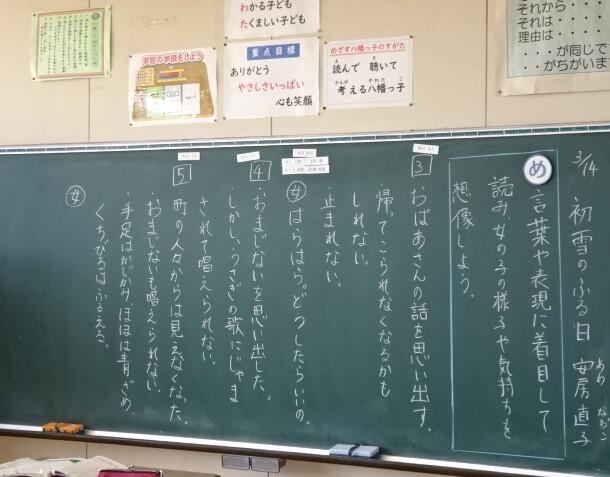 わかる子ども
たくましい子ども
学習の準備をしよう
重点目標
ありがとう
やさしさいっぱい
心も笑顔
めざす八幡っ子のすがた
読んで 聴いて
考える八幡っ子
それから・・・・
それは・・・・
理由は・・・・
・・・が同じで
・・がちがいま
3/14 初雪のふる日 安房直子
あわ なおこ
め
言葉や表現に着目して
読み、女の子の様子や気持ちを
想像しよう。
3
・おばあさんの話を思い出す。
帰ってこられなくなるかも
しれない。
止まれない。
女 はらはら。どうしたらいいの。
4
・おまじないを思い出した。
しかし、うさぎの歌にじゃま
されて唱えられない。
5
・町の人々からは見えなくなった。
おまじないも唱えられない。
・手足はかじかみ、ほほは青ざめ、
くちびるはふるえる。
女